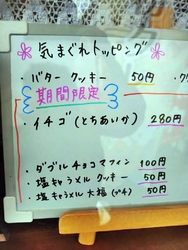 気まぐれトッピング
・バタークッキー 50円
期間限定
・イチゴ(とちあいか) 280円
・ダブルチョコマフィン 100円
・塩キャラメルクッキー 50円
・塩キャラメル大福(プチ) 50円